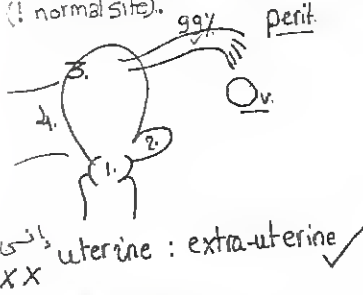 (! normal site).
99%
perit.
3.
Ov.
4.
2.
1.
uterine : extra-uterine ✓
XX